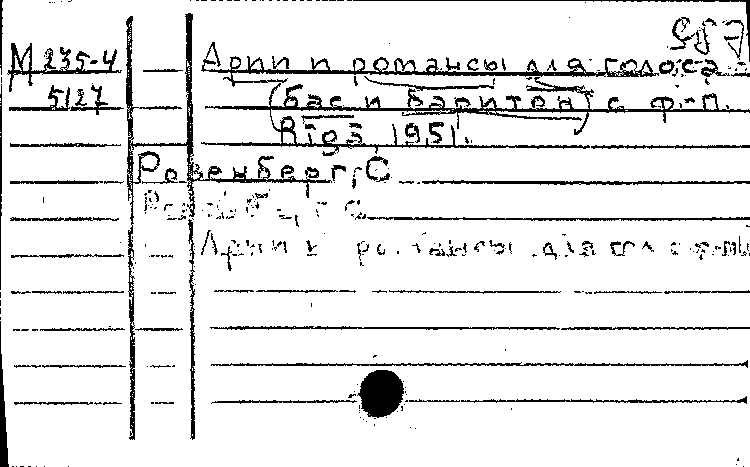 987
М 235-4 Арии и романсы для голоса
5127 (бас и баритон) с ф-п.
Rīgā, 1951.
Розенберг, С
Арии и романсы для гол с ф-п